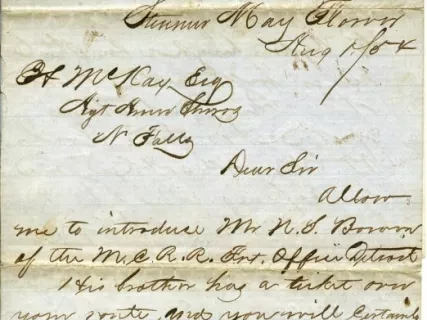 Steamer May Flower
Aug 1/54
McKay Esq
Agt
N Falls
Dear Sir
Allow
me to introduce Mr N. S.
of the M. C. R. R. Frt. Office Detroit
His brother has a ticket over
your route, and you will certainly